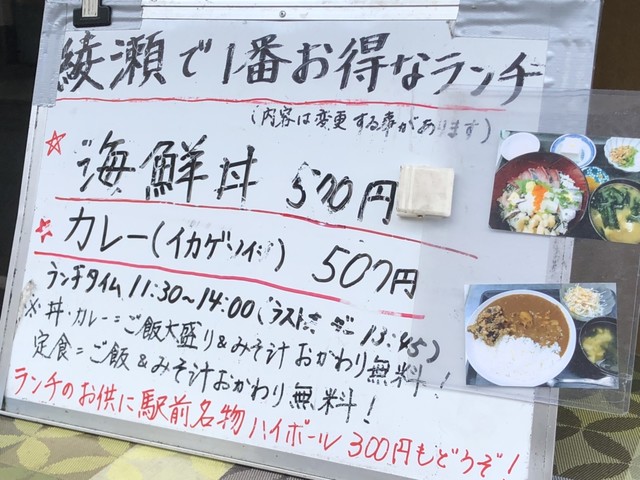 綾瀬で1番お得なランチ
(内容は変更する事があります)
☆ 海鮮丼 500円
☆ カレー(イカゲソ入り) 500円
ランチタイム 11:30~14:00(ラストオーダー 13:45)
※丼・カレー=ご飯大盛り&みそ汁おかわり無料!
定食=ご飯&みそ汁おかわり無料!
ランチのお供に駅前名物ハイボール 300円もどうぞ!